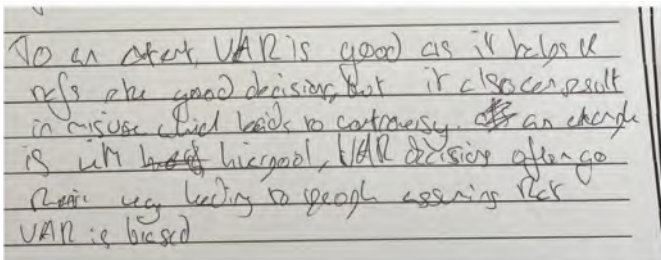 To an extent, VAR is good as it helps
refs make good decision, but it also can result
in misuse which leads to controversy. an example
is with liverpool, VAR decisions often go
their way leading to people assuming that
VAR is biased